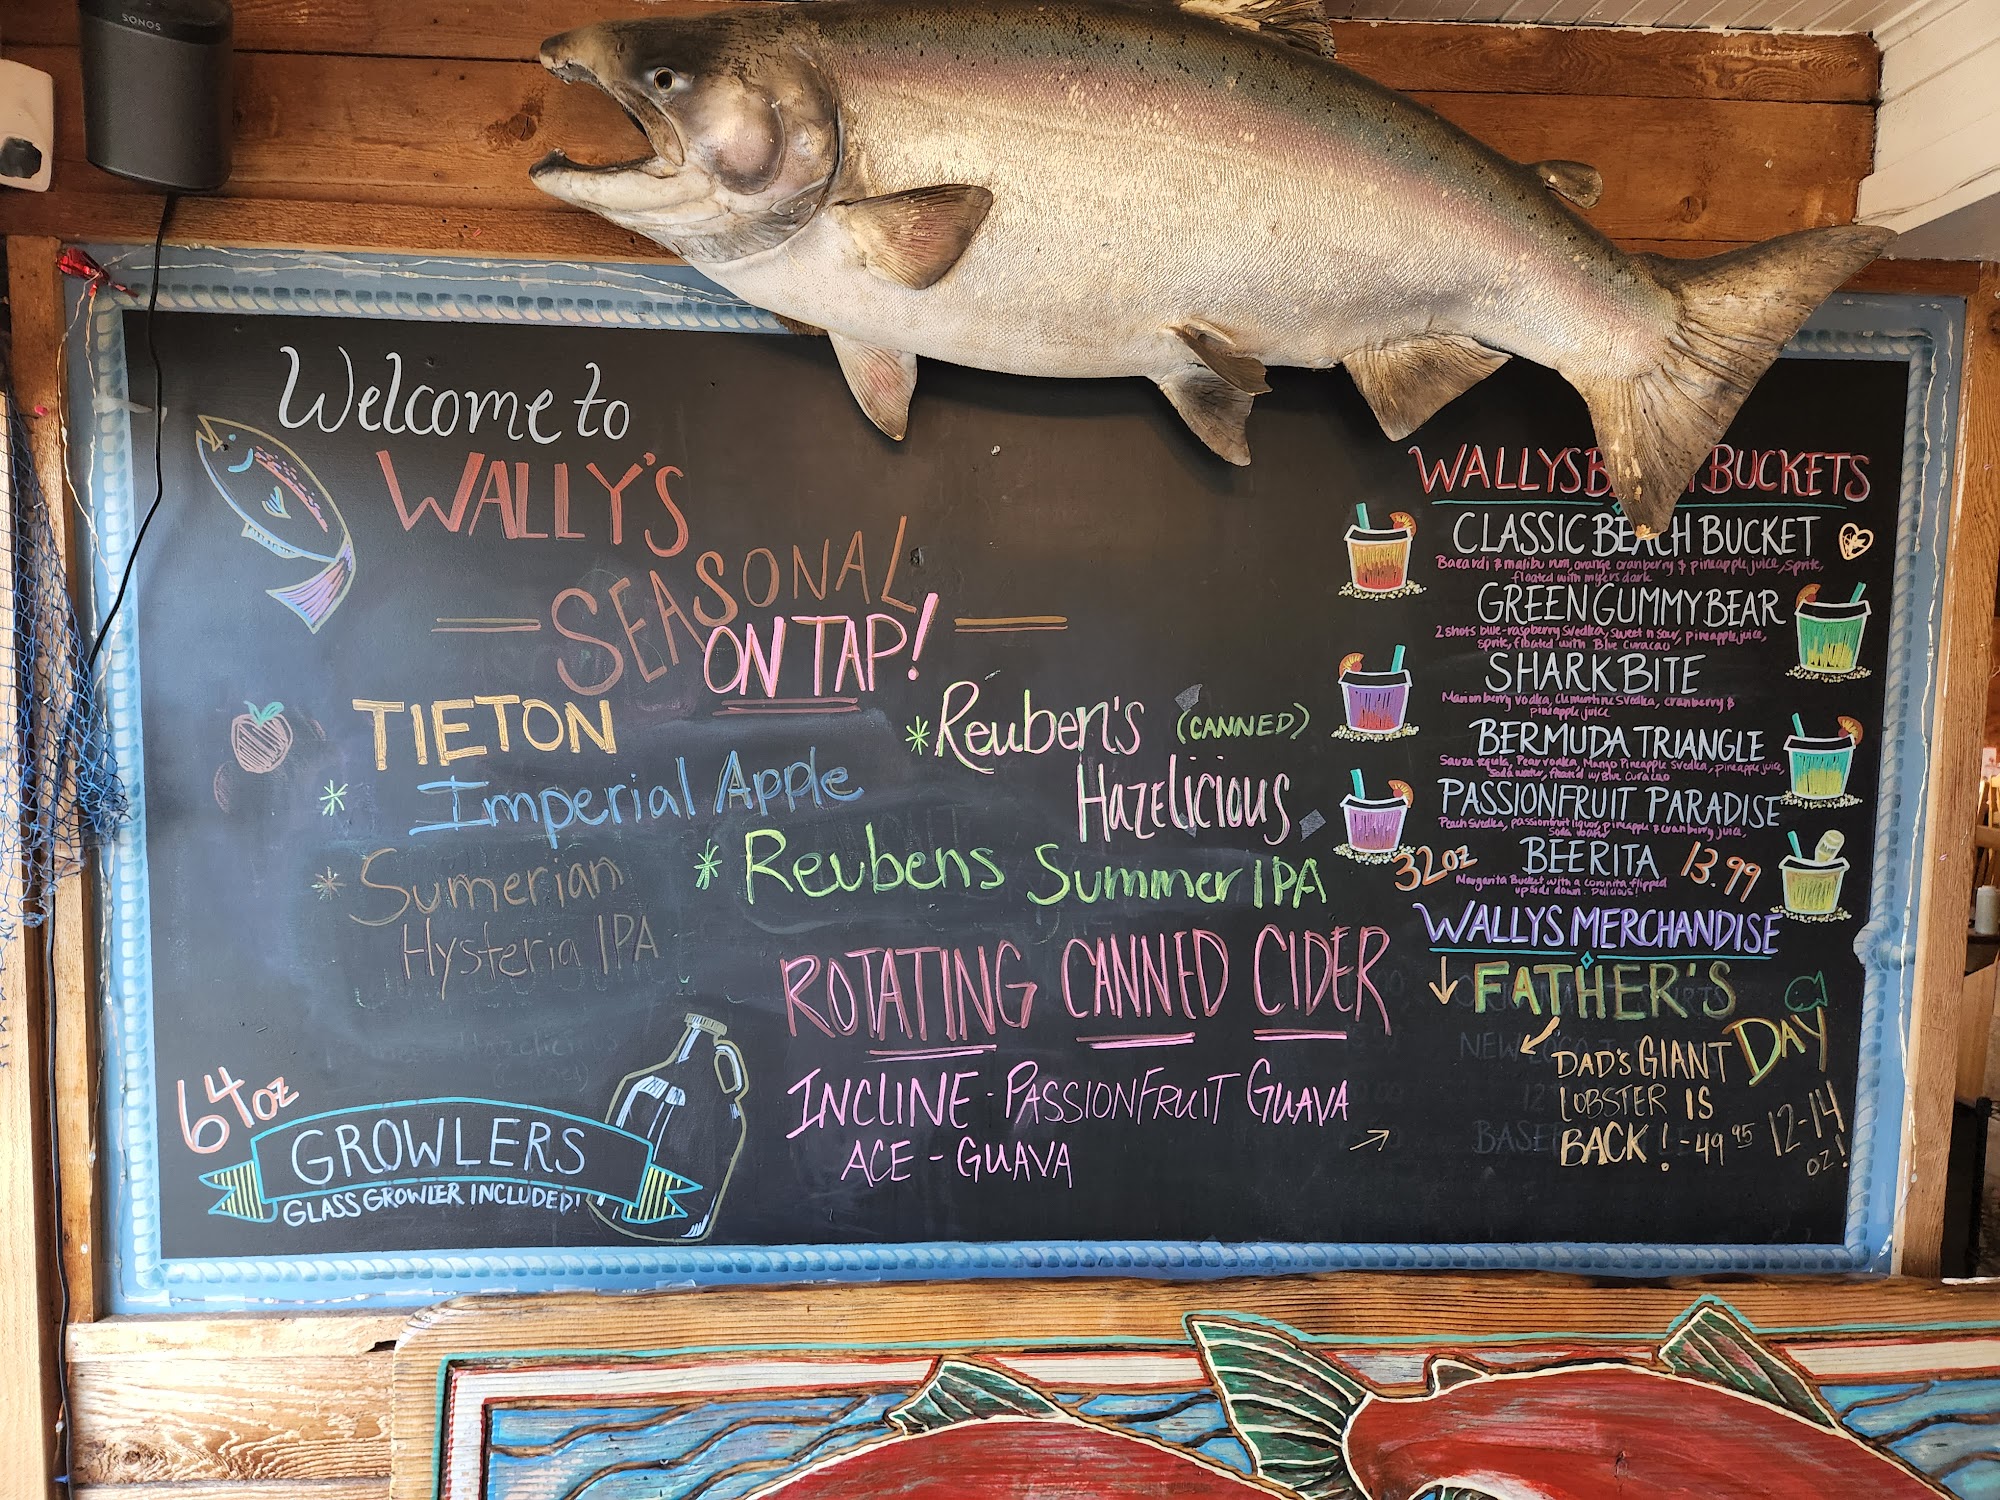 SONOS
Welcome to
WALLY'S
SEASONAL
ON TAP!
TIETON
* Imperial Apple
* Sumerian
Hysteria IPA
* Reuben's (CANNED)
Hazelicious
* Reubens Summer IPA
ROTATING CANNED CIDER
INCLINE - PASSIONFRUIT GUAVA
ACE - GUAVA
64oz
GROWLERS
GLASS GROWLER INCLUDED!
WALLYS BUCKETS
CLASSIC BEACH BUCKET
Bacardi & malibu rum, orange cranberry & pineapple juice, Sprite,
floated with myers dark
GREEN GUMMYBEAR
2 shots blue-raspberry Svedka, sweet n sour, pineapple juice,
sprite, floated with Blue Curacao
SHARK BITE
Marionberry vodka, Clementine Svedka, cranberry &
pineapple juice
BERMUDA TRIANGLE
Sauza tequila, Pear vodka, Mango Pineapple Svedka, pineapple juice,
Soda water, float w/Blue Curacao
PASSIONFRUIT PARADISE
Peach Svedka, passionfruit liquor, pineapple & cranberry juice,
Soda water
32oz BEERITA 13.99
Margarita Bucket with a coronita flipped
upside down. Delicious!
WALLYS MERCHANDISE
FATHER'S
DAY
DAD'S GIANT
LOBSTER IS
BACK! - 49 95 12-14
oz!